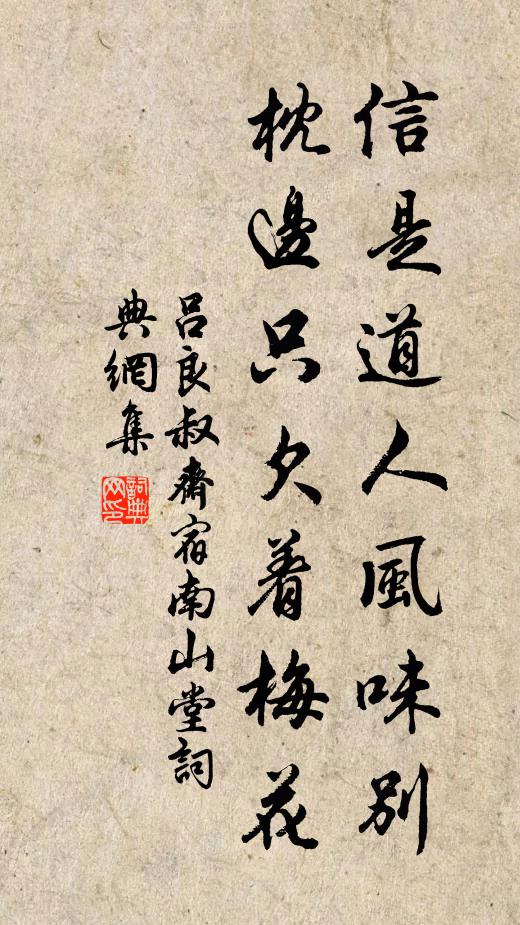 信是道人風味別
枕邊只欠着梅花
吕良叔齋宿南山堂詞
典網集
詞典
网印